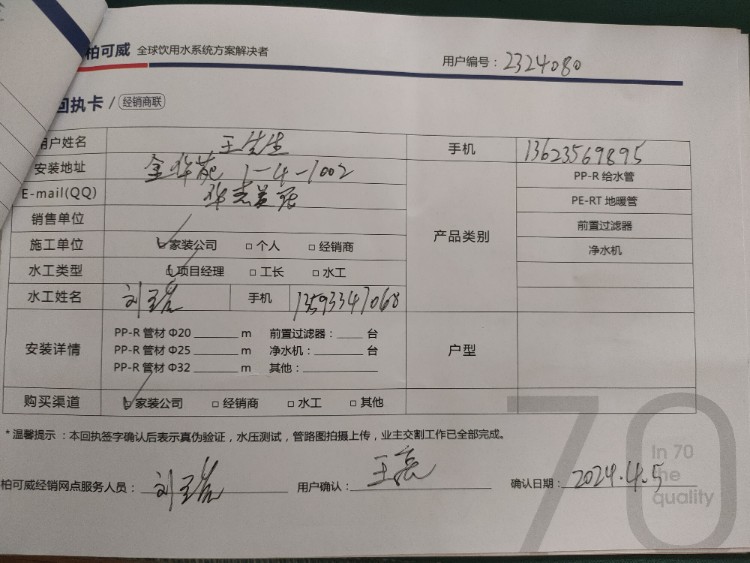 柏可威 全球饮用水系统方案解决者
用户编号：2324080
回执卡 / 经销商联
用户姓名 王先生 手机 13623569895
安装地址 金华苑 1-4-1002
E-mail(QQ)
销售单位
产品类别
PP-R 给水管
PE-RT 地暖管
前置过滤器
净水机
施工单位 家装公司 □ 个人 □ 经销商
水工类型 项目经理 □ 工长 □ 水工
水工姓名 手机 13593347068
安装详情
PP-R 管材 Φ20 m 前置过滤器： 台
PP-R 管材 Φ25 m 净水机： 台
PP-R 管材 Φ32 m 其他：
户型
购买渠道 家装公司 □ 经销商 □ 水工 □ 其他
* 温馨提示 ：本回执签字确认后表示真伪验证，水压测试，管路图拍摄上传，业主交割工作已全部完成。
柏可威经销网点服务人员： 用户确认： 确认日期：2024.4.5
70
In 70
the
quality